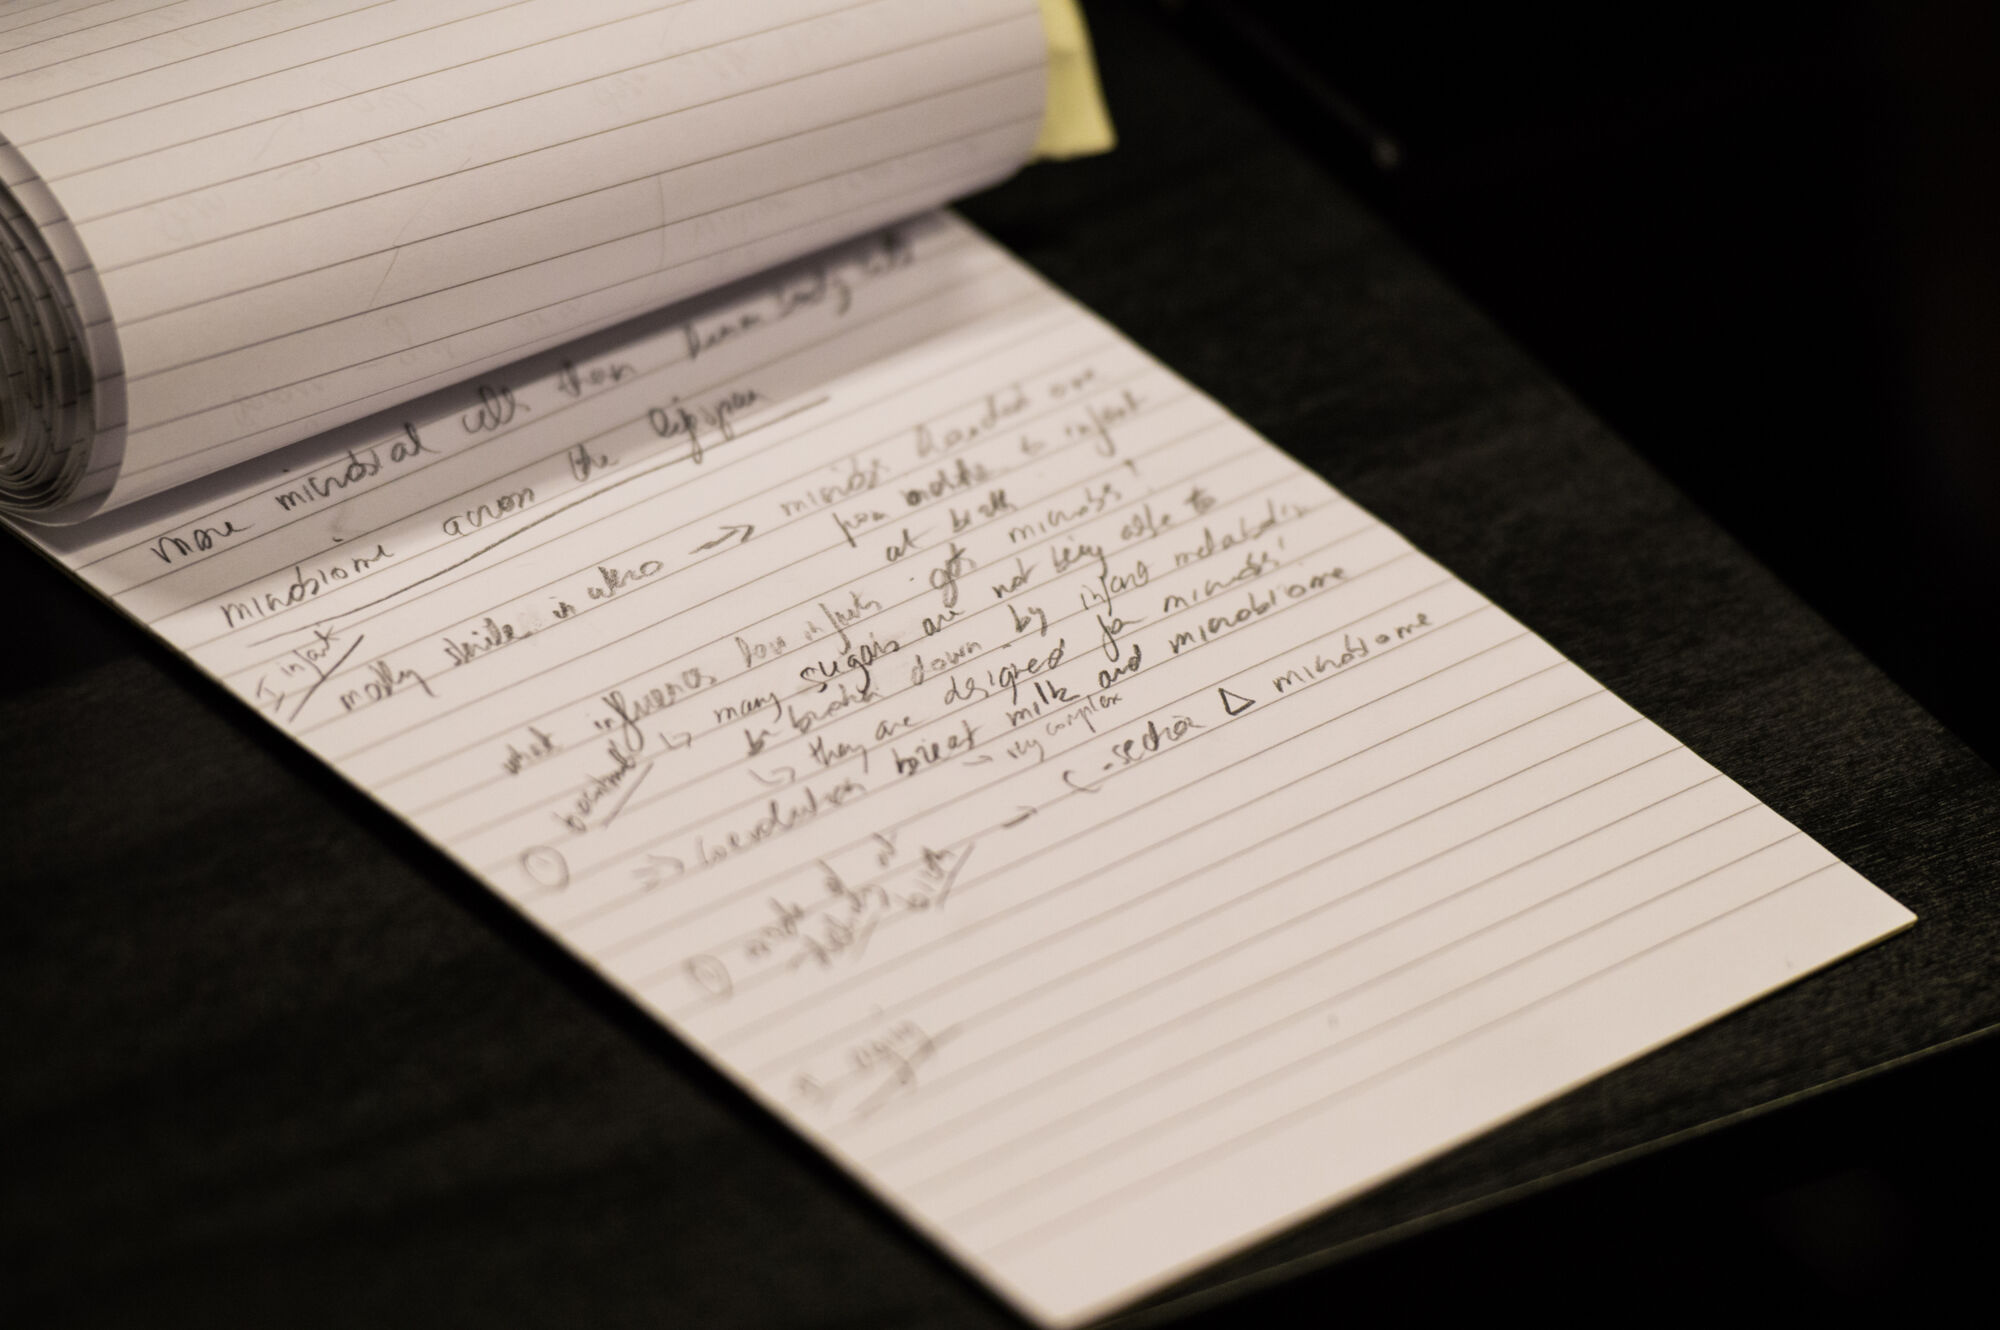 more microbial cells than human body cells
microbiome across the lifespan
I infant
mostly sterile in utero → microbes handed over
from mother to infant
at birth
what influences how infants get microbes!
① breastmilk ↳ many sugars are not being able to
be broken down by infant metabolism
↳ they are designed for microbes!
⇒ coevolution breast milk and microbiome
→ very complex
② mode of → C-section Δ microbiome
delivery at
birth
aging